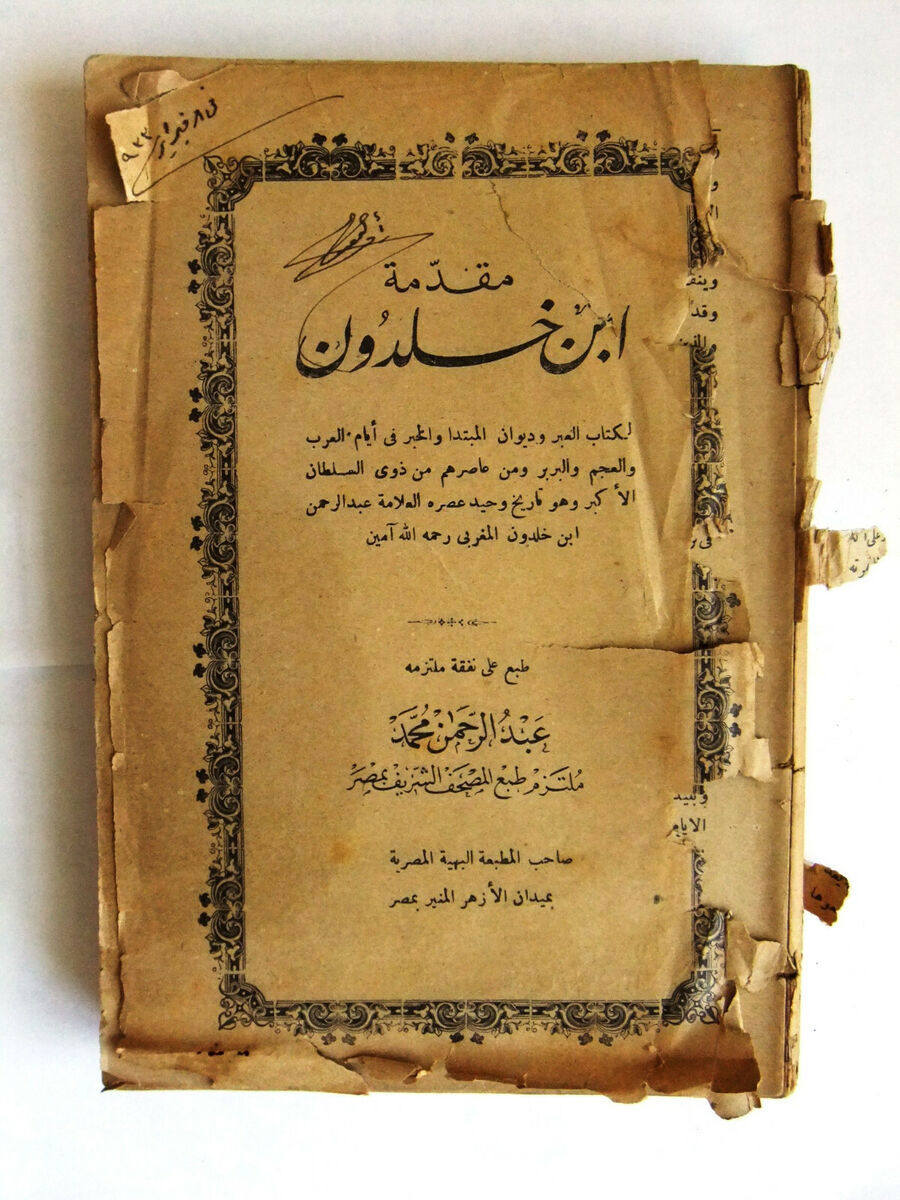 فى ٨ فبراير ٩٣٣
مقدّمة
ابن خلدُون
لكتاب العبر وديوان المبتدا والخبر فى أيام العرب
والعجم والبربر ومن عاصرهم من ذوى السلطان
الأكبر وهو تاريخ وحيد عصره العلامة عبدالرحمن
ابن خلدون المغربى رحمه الله آمين
طبع على نفقة ملتزمه
عَبْدُ الرَّحمٰن محمَّد
مُلتَزِم طبع المصحَف الشريف بمصر
صاحب المطبعة البهية المصرية
بميدان الأزهر المنير بمصر
وقد
وبيد
الايام